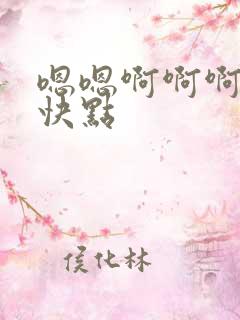 嗯嗯啊啊啊
快點
侯化林